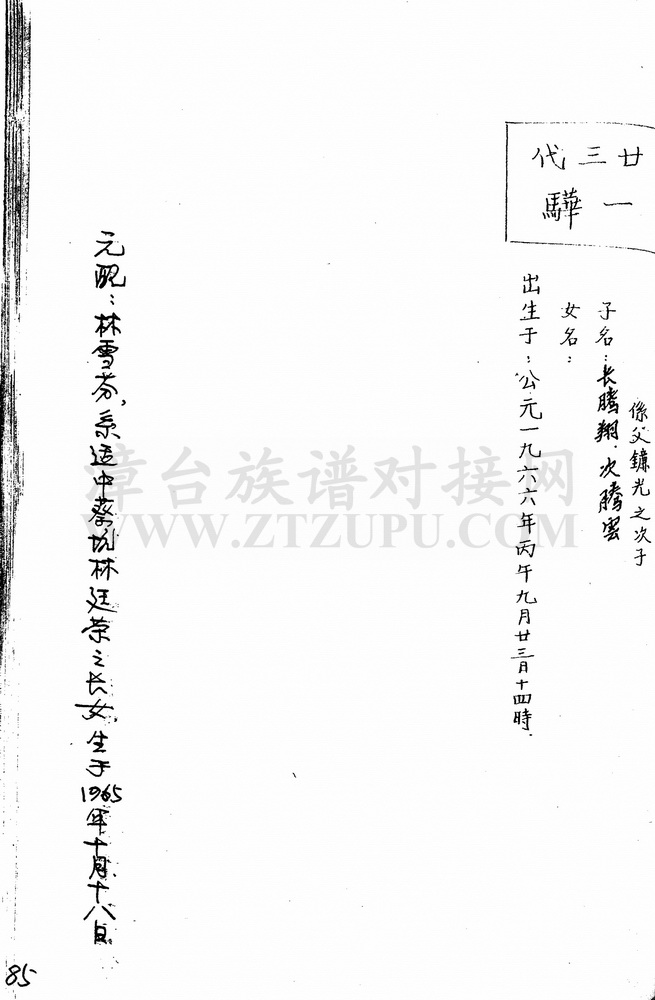 廿三代
一驊
係父鐮光之次子
子名：长腾翔．次腾雲
女名：
出生于：公元一九六六年丙午九月廿三日十四時．
元配：林雪芬，系适中蔡坑林廷荣之长女，生于1965年十月十八日
漳台族谱对接网
WWW.ZTZUPU.COM
85